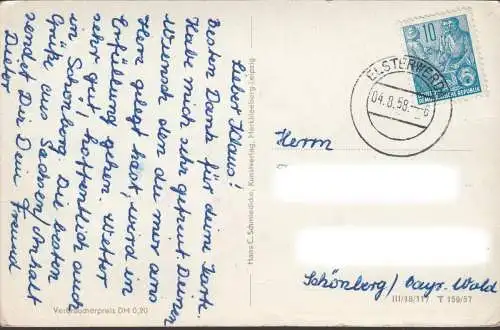 Lieber Klaus!
Besten Dank für dein Karte.
Habe mich sehr gefreut. Deinen
Wunsch den du mir ans
Herz gelegt hast, wird in
Erfüllung gehen. Wetter
sehr gut, hoffentlich auch
in Schönberg. Die besten
Grüße aus Sachsen/Anhalt
sendet Dir Dein Freund
Dieter
Verbraucherpreis DM 0,20
Hans C. Schmiedicke, Kunstverlag, Markkleeberg-Leipzig
10
DEUTSCHE DEMOKRATISCHE REPUBLIK
ELSTERWERDA
04.8.58
Herrn
Schönberg/Bayr. Wald
III/18/117 T 159/57